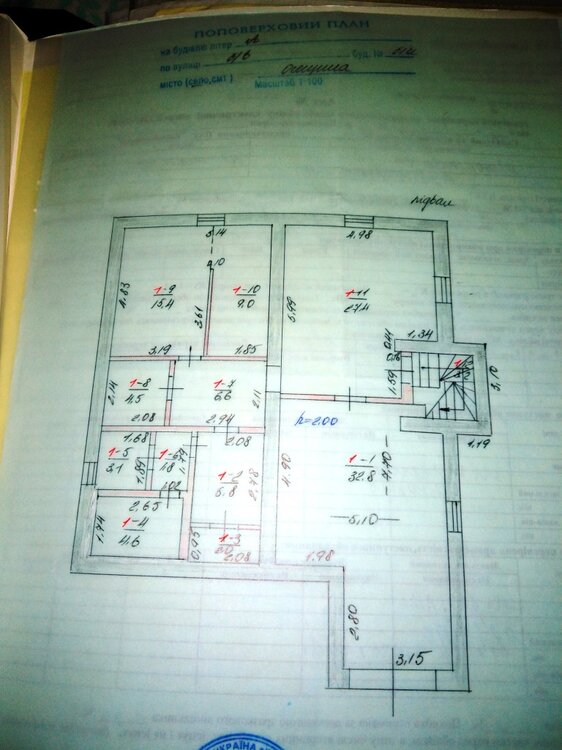 ПОПОВЕРХОВИЙ ПЛАН
на будівлю літер "А"
по вулиці б/в буд. №
місто (село, смт)
Масштаб 1:100
підвал
5,14
4,98
0,10
4,83
1-9
15,4
3,61
1-10
9,0
5,99
1-11
27,4
1,34
0,41
3,19
1,85
1,59
5,10
2,14
1-8
4,5
2,08
1-7
6,6
2,11
2,94
h=2.00
1,19
1,68
2,08
1-5
3,1
1,89
1-6
1,8
1-2
5,8
2,78
4,90
1-1
32,8
4,40
1,02
2,65
5,10
1,74
1-4
4,6
0,95
1-3
2,0
2,08
1,98
2,80
3,15
УКРАЇНА